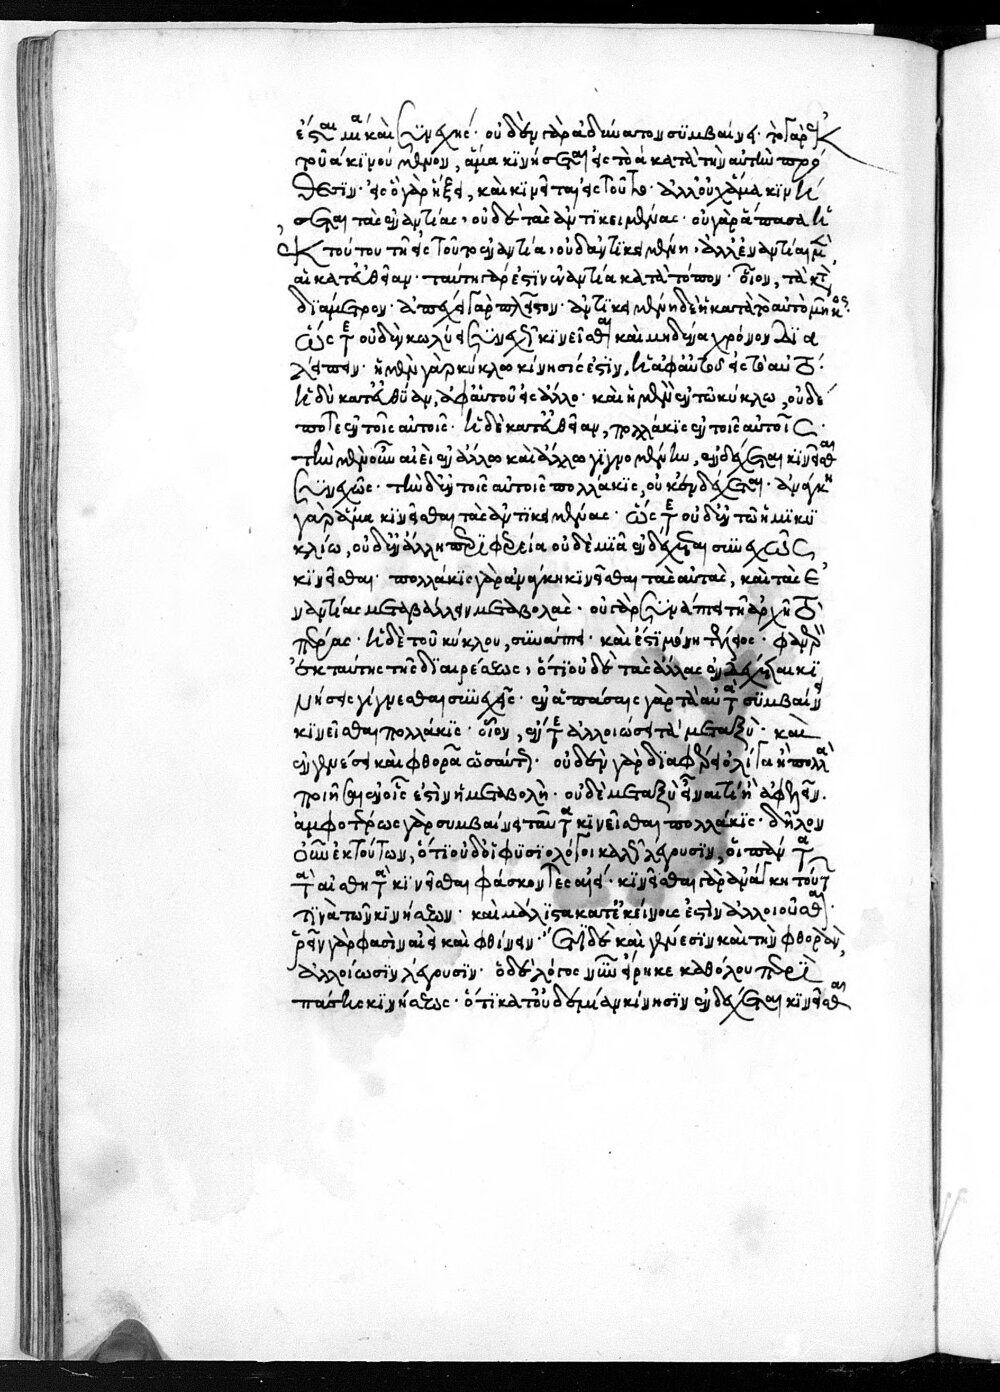 ἔσται μία καὶ συνεχής· οὐδὲν γὰρ ἀδύνατον συμβαίνει· τὸ γὰρ ἐκ
τοῦ α κινούμενον, ἅμα κινήσεται εἰς τὸ α κατὰ τὴν αὐτὴν πρό
θεσιν· εἰς ὃ γὰρ ἥξει, καὶ κινεῖται εἰς τοῦτο· ἀλλ' οὐχ ἅμα κινή
σεται τὰς ἐναντίας, οὐδὲ τὰς ἀντικειμένας· οὐ γὰρ ἅπασα ἡ
ἐκ τούτου τῇ εἰς τοῦτο ἐναντία, οὐδ' ἀντικειμένη, ἀλλ' ἐναντία μὲν
ἡ κατ' εὐθεῖαν· ταύτῃ γάρ ἐστιν ἐναντία κατὰ τόπον· οἷον, τὰ κατὰ
διάμετρον· ἀπέχει γὰρ πλεῖστον· ἀντικειμένη δὲ ἡ κατὰ τὸ αὐτὸ μῆκος·
ὥστε οὐδὲν κωλύει συνεχῶς κινεῖσθαι καὶ μηδένα χρόνον δια
λείπειν· ἡ μὲν γὰρ κύκλω κίνησίς ἐστιν, ἡ ἀφ' αὑτοῦ εἰς τὸ αὐτό·
ἡ δὲ κατ' εὐθεῖαν, ἀφ' αὑτοῦ εἰς ἄλλο· καὶ ἡ μὲν ἐν τῶ κύκλω, οὐδέ
ποτε ἐν τοῖς αὐτοῖς· ἡ δὲ κατ' εὐθεῖαν, πολλάκις ἐν τοῖς αὐτοῖς·
τὴν μὲν οὖν αἰεὶ ἐν ἄλλω καὶ ἄλλω γιγνομένην, ἐνδέχεται κινεῖσθαι
συνεχῶς· τὴν δ' ἐν τοῖς αὐτοῖς πολλάκις, οὐκ ἐνδέχεται· ἀνάγκη
γὰρ ἅμα κινεῖσθαι τὰς ἀντικειμένας· ὥστε οὐδ' ἐν τῶ ἡμικυ
κλίω, οὐδ' ἐν ἄλλη περιφερεία οὐδεμιᾶ ἐνδέχεται συνεχῶς
κινεῖσθαι· πολλάκις γὰρ ἀνάγκη κινεῖσθαι τὰς αὐτὰς, καὶ τὰς ἐ
ναντίας μεταβάλλειν μεταβολάς· οὐ γὰρ συνάπτει τῆ ἀρχῆ τὸ
πέρας· ἡ δὲ τοῦ κύκλου, συνάπτει· καὶ ἔστι μόνη τέλειος· φανερὸν
ἐκ ταύτης τῆς διαιρέσεως, ὅτι οὐδὲ τὰς ἄλλας ἐνδέχεται κι
νήσεις γίγνεσθαι συνεχεῖς· ἐν ἁπάσαις γὰρ ταὐτὰ συμβαίνει
κινεῖσθαι πολλάκις· οἷον, ἐν τε ἀλλοιώσει τὰ μεταξὺ· καὶ
ἐν γενέσει καὶ φθορᾶ ὡσαύτως· οὐδὲν γὰρ διαφέρει ὀλίγα ἢ πολλὰ
ποιῆσαι ἐν οἷς ἐστὶν ἡ μεταβολὴ· οὐδὲ μεταξὺ θεῖναί τι ἢ ἀφελεῖν·
ἀμφοτέρως γὰρ συμβαίνει ταὐτὰ κινεῖσθαι πολλάκις· δῆλον
οὖν ἐκ τούτων, ὅτι οὐδ' οἱ φυσιολόγοι καλῶς λέγουσιν, οἱ πάντα
τὰ αἰσθητὰ κινεῖσθαι φάσκοντες αἰεί· κινεῖσθαι γὰρ ἀνάγκη τούτων
τινὰ τῶν κινήσεων· καὶ μάλιστα κατ' ἐκείνοις ἐστὶν ἀλλοιοῦσθαι·
ῥεῖν γὰρ φασὶν αἰεὶ καὶ φθίνειν· ἔτι δὲ καὶ γένεσιν καὶ τὴν φθορὰν,
ἀλλοίωσιν λέγουσιν· ὁ δὲ λόγος νῦν εἴρηκε καθόλου περὶ
πάσης κινήσεως· ὅτι κατ' οὐδεμίαν κίνησιν ἐνδέχεται κινεῖσθαι